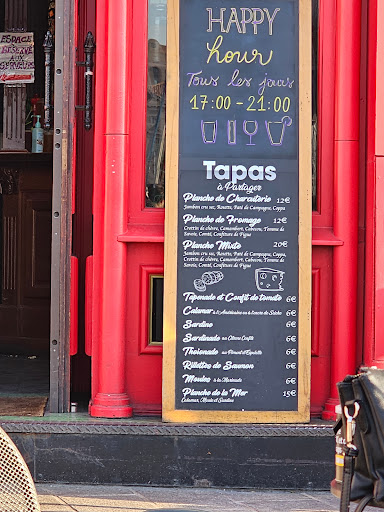 ESPACE
RÉSERVÉ
AUX
SERVEURS
HAPPY
hour
Tous les jours
17:00 - 21:00
Tapas
à Partager
Planche de Charcuterie 12€
Jambon cru sec, Rosette, Paté de Campagne, Coppa
Planche de Fromage 12€
Crottin de chèvre, Camembert, Cabecou, Tomme de
Savoie, Comté, Confiture de Figue
Planche Mixte 20€
Jambon cru sec, Rosette, Paté de Campagne, Coppa,
Crottin de chèvre, Camembert, Cabecou, Tomme de
Savoie, Comté, Confiture de Figue
Tapenade et Confit de tomate 6€
Calamar à l'Américaine ou à l'encre de Sèche 6€
Sardine 6€
Sardinade au Citron Confit 6€
Thoionade au Piment d'Espelette 6€
Rillettes de Saumon 6€
Moules à la Marinade 6€
Planche de la Mer 15€
Calamar, Moule et Sardine